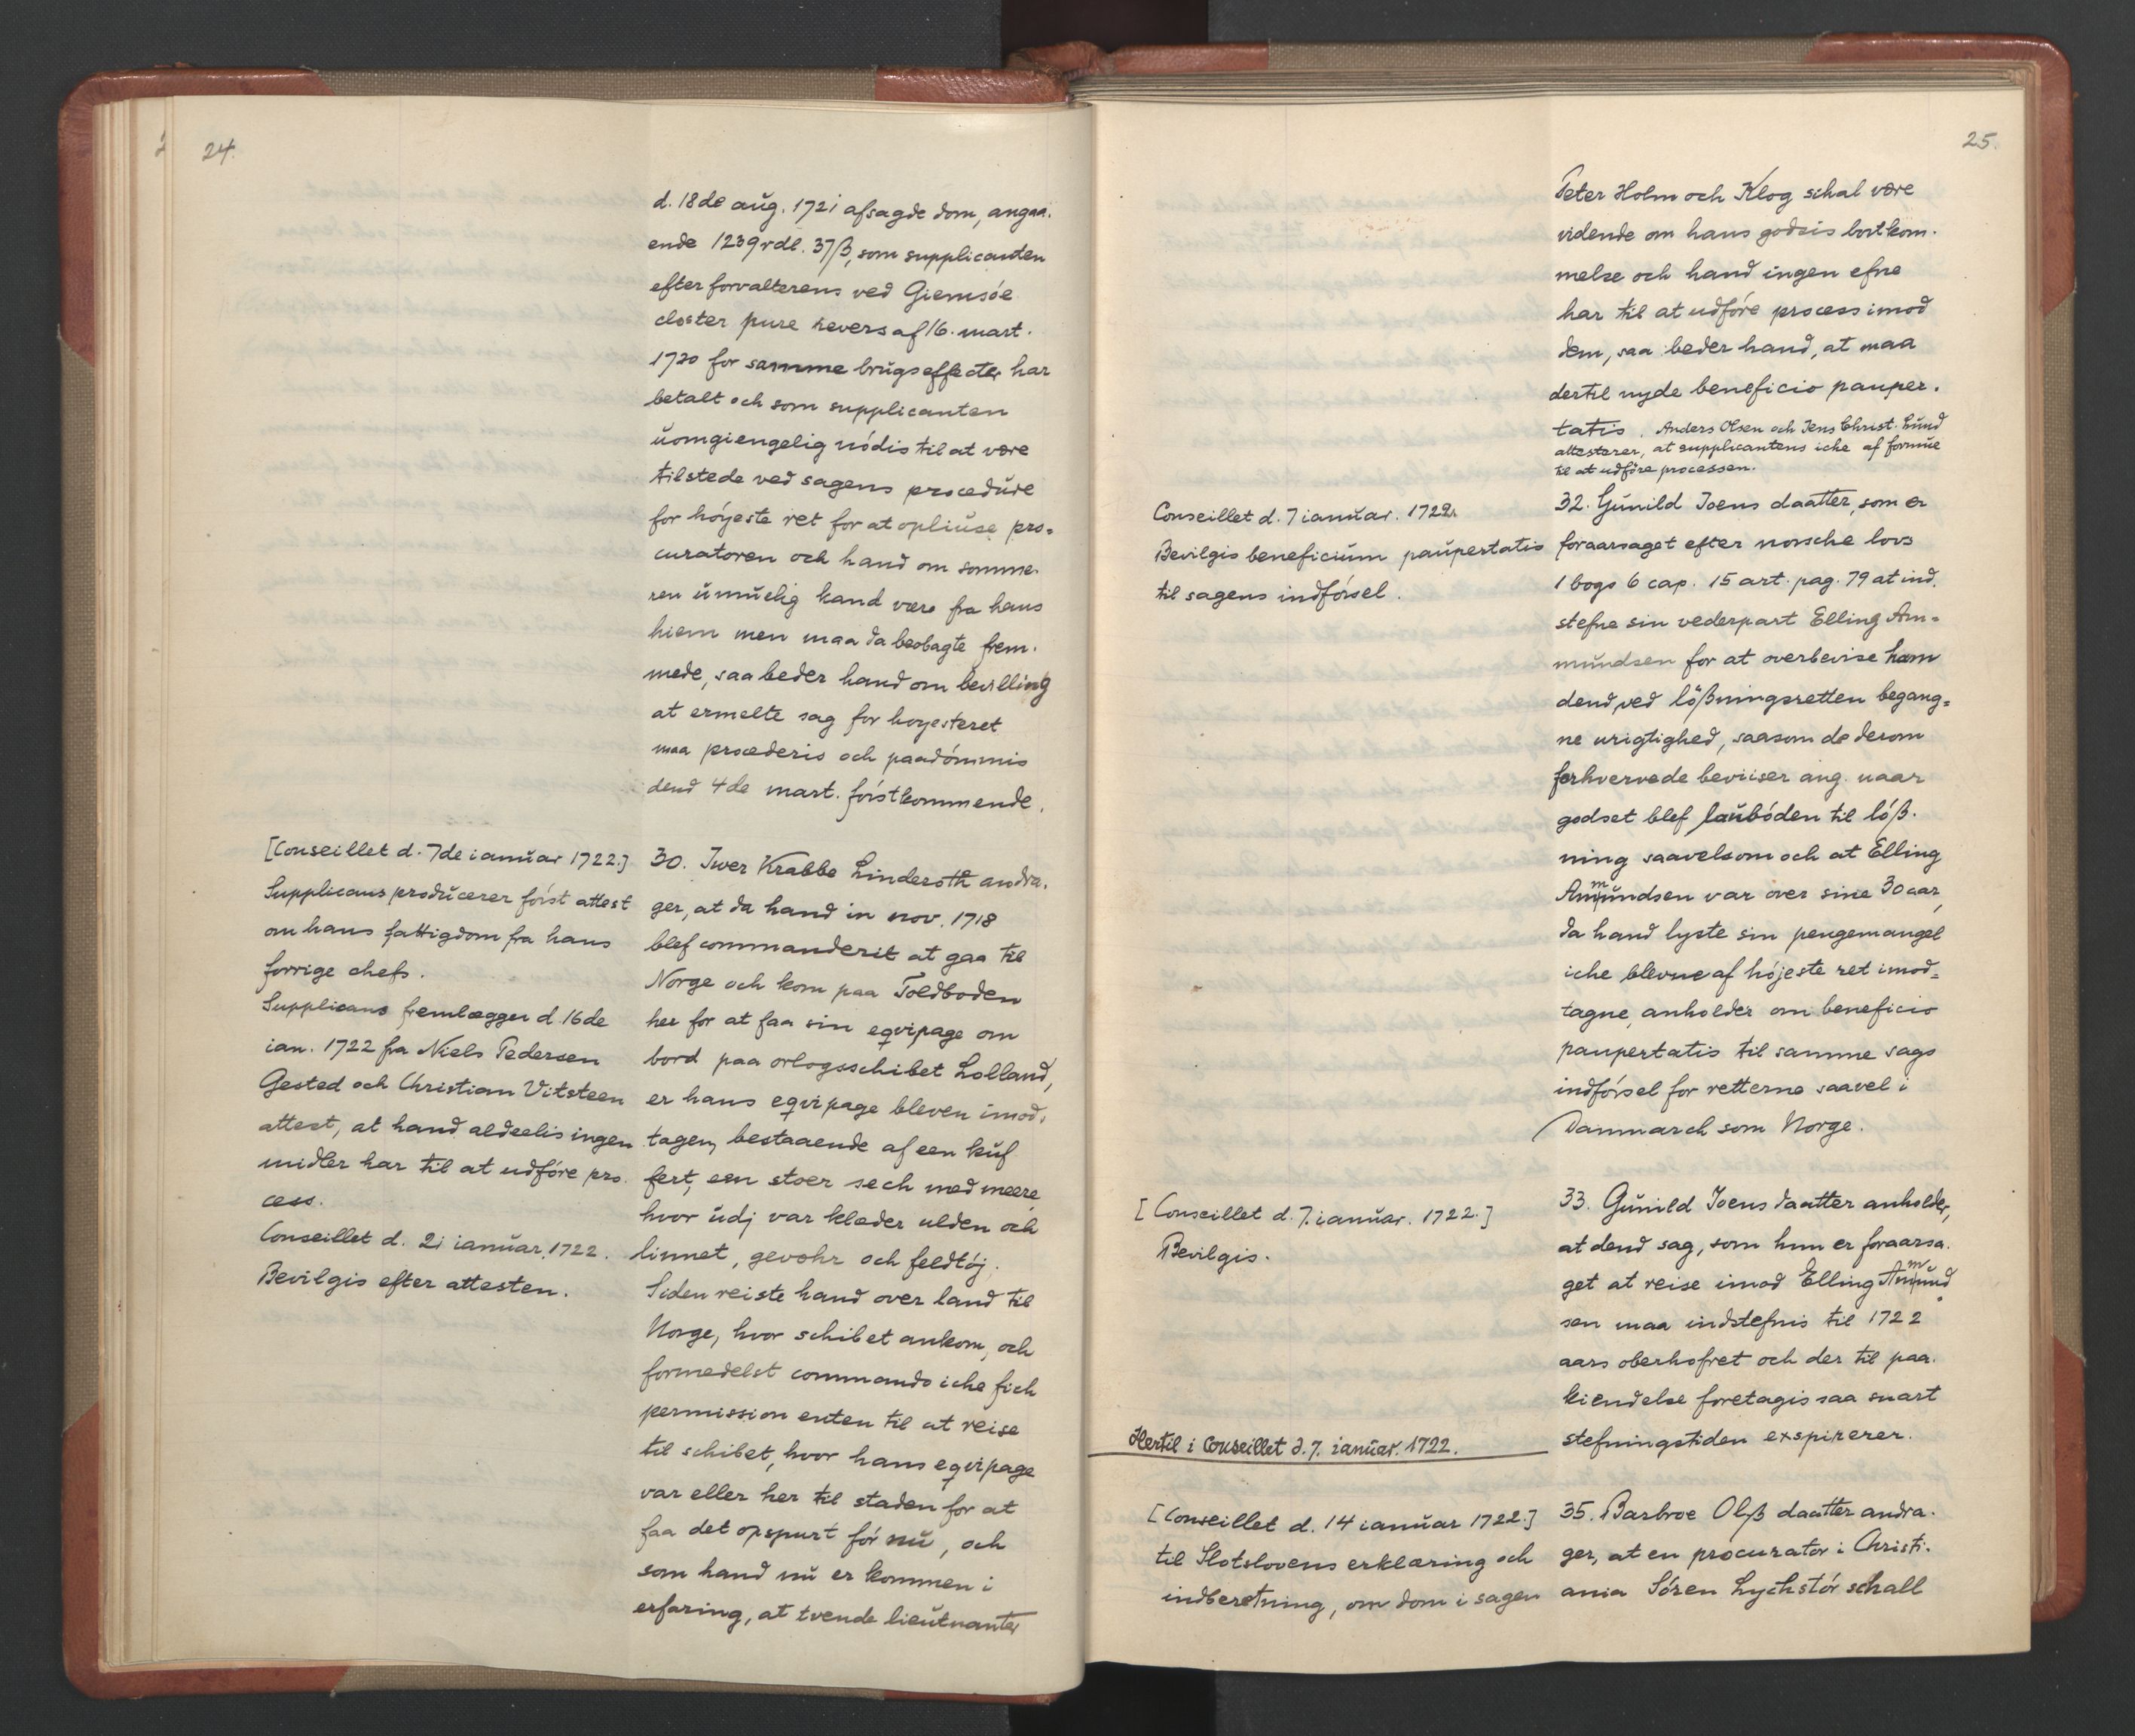 24.
d. 18de aug. 1721 afsagde dom, angaa-
ende 1239 rdl. 37 β, som supplicanten
efter forvalterens ved Giemsöe
closter pure revers af 16. mart.
1720 for samme brugseffecter har
betalt och som supplicanten
uomgiengelig nödis til at være
tilstede ved sagens procedure
for höyeste ret for at opliuse pro-
curatoren och hand om somme-
ren umuelig kand være fra hans
hiem men maa da beobagte frem-
mede, saa beder hand om bevilling
at ermelte sag for hoyesteret
maa procederis och paadömmis
dend 4de mart. förstkommende.
[Conseillet d. 7de ianuar 1722.]
Supplicans producerer först attest
om hans fattigdom fra hans
forrige chefs.
Supplicans fremlægger d. 16de
ian. 1722 fra Niels Pedersen
Gested och Christian Vitsteen
attest, at hand aldeelis ingen
midler har til at udföre pro-
cess.
Conseillet d. 21 ianuar 1722.
Bevilgis efter attesten.
30. Iwer Krabbe Linderoth andra-
ger, at da hand in nov. 1718
blef commanderit at gaa til
Norge och kom paa Toldboden
her for at faa sin eqvipage om
bord paa orlogsschibet Lolland,
er hans eqvipage bleven imod-
tagen, bestaaende af een kuf
fert, een stoer sech med meere
hvor udj var klæder ulden och
linnet, gevohr och feldtöj.
Siden reiste hand over land til
Norge, hvor schibet ankom, och
formedelst commando iche fich
permission enten til at reise
til schibet, hvor hans eqvipage
var eller her til staden for at
faa det opspurt för nu, och
som hand nu er kommen i
erfaring, at tvende lieutnanter
25.
Peter Holm och Klog schal være
vidende om hans godsis bortkom-
melse och hand ingen efne
har til at udföre process imod
dem, saa beder hand, at maa
dertil nyde beneficio pauper-
tatis. Anders Olsen och Jens Christ. Lund
attesterer, at supplicantens iche af formue
til at udföre processen.
Conseillet d. 7 ianuar. 1722.
Bevilgis beneficium paupertatis
til sagens indförsel.
32. Gunild Joens daatter, som er
foraarsaget efter norsche lovs
1 bogs 6 cap. 15 art. pag. 79 at ind-
stefne sin vederpart Elling Am-
mundsen for at overbevise ham
dend ved lößningsretten begang-
ne urigtighed, saasom de derom
forhvervede beviiser ang. naar
godset blef laubóden til löß-
ning saavelsom och at Elling
Ammundsen var over sine 30 aar,
da hand lyste sin pengemangel
iche blevne af höjeste ret imod-
tagne, anholder om beneficio
paupertatis til samme sags
indförsel for retterne saavel i
Danmarch som Norge.
[Conseillet d. 7. ianuar. 1722.]
Bevilgis.
33. Gunild Joens daatter anholder,
at dend sag, som hun er foraarsa-
get at reise imod Elling Ammund
sen maa indstefnis til 1722
aars oberhofret och der til paa-
kiendelse foretagis saa snart
stefningstiden exspirerer.
Hertil i Conseillet d. 7. ianuar. 1722.
[Conseillet d. 14 ianuar 1722.]
til Slotslovens erklæring och
indberetning, om dom i sagen
35. Barbroe Olß daatter andra-
ger, at en procurator i Christi-
ania Sören Lychstör schall